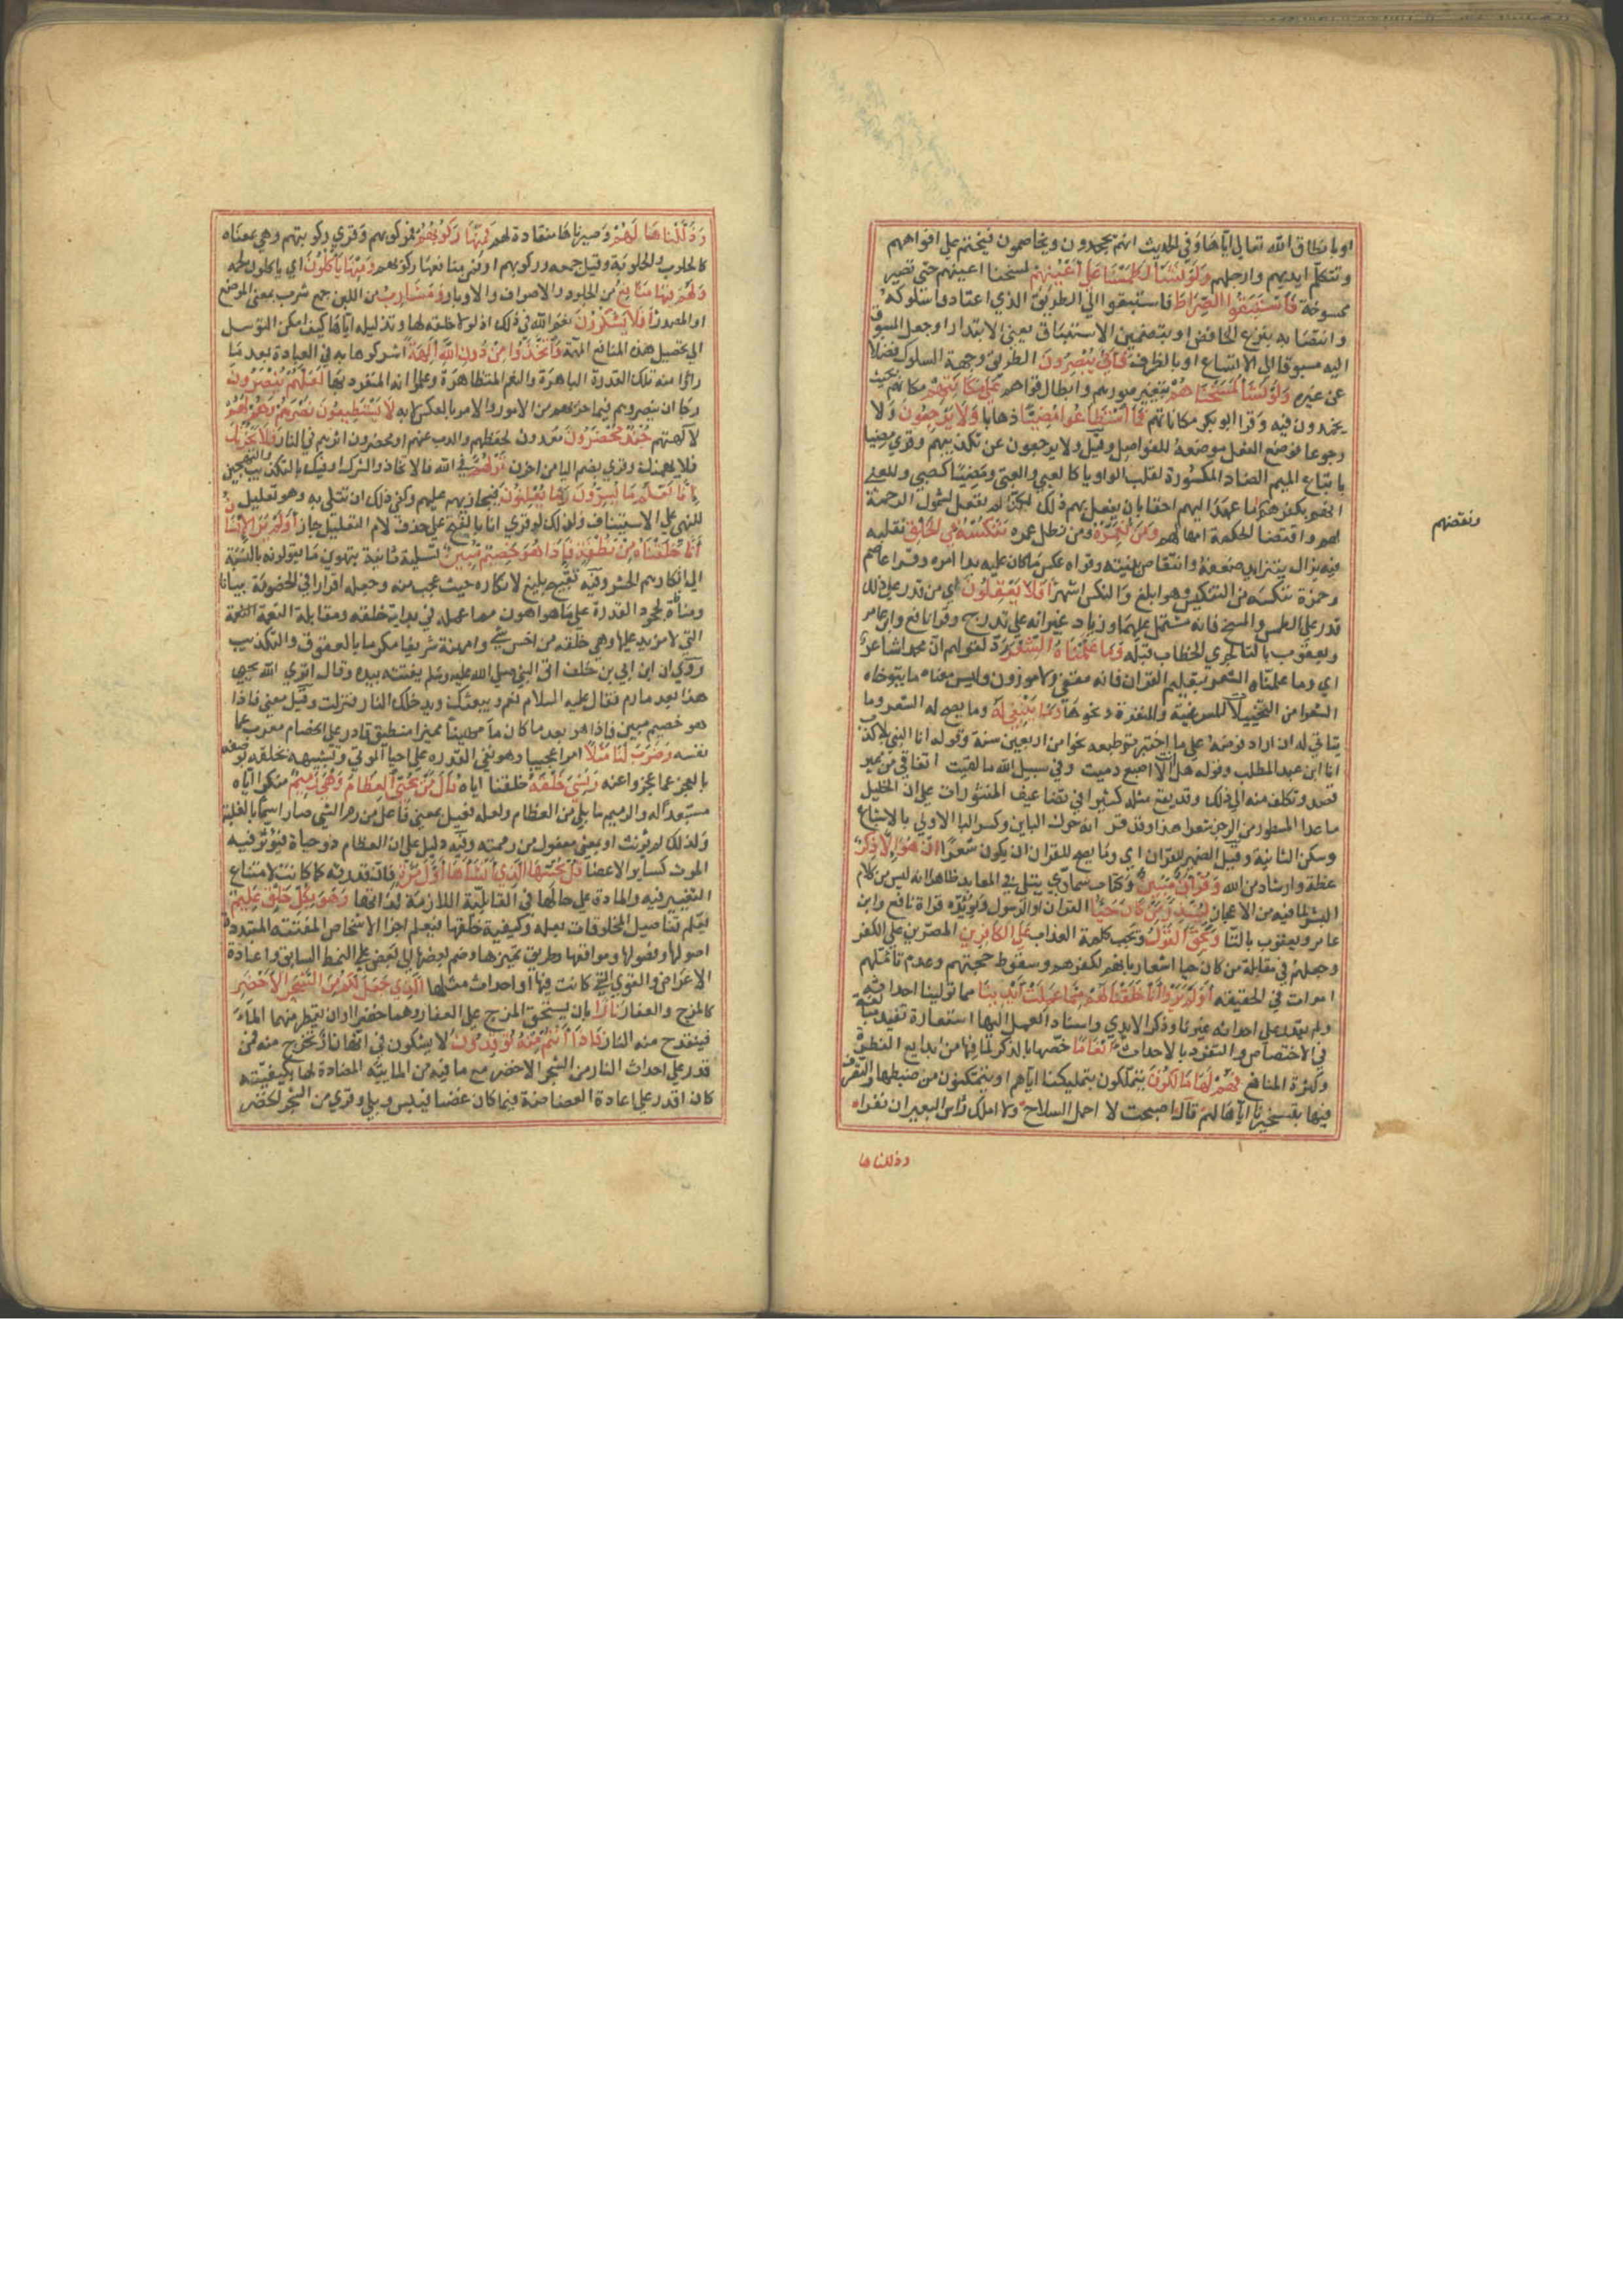 او بانطاق الله تعالى اياها وفي الحديث انهم يجحدون ويخاصمون فيختم على افواههم
وتتكلم ايديهم وارجلهم وَلَوْ نَشَاُ لَطَمَسْنَا عَلَى اَعْيُنِهِمْ لمسحنا اعينهم حتى تصير
ممسوحة فَاسْتَبَقُوا الصِّرَاطَ فاستبقوا الى الطريق الذي اعتادوا سلوكه
وانتصابه بنزع الخافض او بتضمين الاستباق معنى الابتدار او جعل المسبوق
اليه مسبوقا على الاتساع او بالظرف فَاَنَّى يُبْصِرُونَ الطريق وجهة السلوك فضلا
عن غيره وَلَوْ نَشَاُ لَمَسَخْنَاهُمْ بتغيير صورهم وابطال قواهم عَلَى مَكَانَتِهِمْ مكانهم بحيث
يجمدون فيه وقرا ابو بكر مكاناتهم فَمَا اسْتَطَاعُوا مُضِيًّا ذهابا وَلَا يَرْجِعُونَ ولا
رجوعا فوضع الفعل موضعه للفواصل وقيل ولا يرجعون عن تكذيبهم وقري مضيا
باتباع الميم الضاد المكسورة لقلب الواو يا كالعتي والعتي ومضيا كصبي والمعنى
انهم بكفرهم ونقضهم ما عهد اليهم احقا بان يفعل بهم ذلك لكنا لم نفعل لشمول الرحمة
لهم واقتضا الحكمة امهالهم وَمَنْ نُعَمِّرْهُ ومن نطل عمره نُنَكِّسْهُ فِي الْخَلْقِ نقلبه
فيه فلا يزال يتزايد ضعفه وانتقاص بنيته وقواه عكس ما كان عليه بدا امره وقرا عاصم
وحمزة ننكسه من التنكيس وهو ابلغ والنكس اشهر اَفَلَا يَعْقِلُونَ ان من قدر على ذلك
قدر على الطمس والمسخ فانه مشتمل عليهما وزياد غير انه على تدرج وقرا نافع وابن عامر
ويعقوب بالتا لجري الخطاب قبله وَمَا عَلَّمْنَاهُ الشِّعْرَ رد لقولهم ان محمدا شاعر
اي وما علمناه الشعر بتعليم القران فانه مقفى ولا موزون وليس معناه ما يتوخاه
الشعرا من التخييلات المرغبة والمنفرة ونحوها وَمَا يَنْبَغِي لَهُ وما يصح له الشعر وما
يتاتى له ان اراد قرضه على ما اختبرتم طبعه نحوا من اربعين سنة وقوله انا النبي لا كذب
انا ابن عبد المطلب وقوله هل انت الا اصبع دميت وفي سبيل الله ما لقيت اتفاقي من غير
قصد وتكلف منه الى ذلك وقد يقع مثله كثيرا في تضاعيف المنثورات على ان الخليل
ما عد المشطور من الرجز شعرا هذا وقد قر انه حرك البابين وكسر التا الاولى بالاشباع
وسكن الثانية وقيل الضمير للقران اي وما يصح للقران ان يكون شعرا اِنْ هُوَ اِلَّا ذِكْرٌ
عظة وارشاد من الله وَقُرْاٰنٌ مُبِينٌ وكتاب سماوي يتلى في المعابد ظاهر انه ليس من كلام
البشر لما فيه من الاعجاز لِيُنْذِرَ مَنْ كَانَ حَيًّا القران او الرسول ويؤيده قراة نافع وابن
عامر ويعقوب بالتا وَيَحِقَّ الْقَوْلُ وتجب كلمة العذاب عَلَى الْكَافِرِينَ المصرين على الكفر
وجعلهم في مقابلة من كان حيا اشعار بانهم لكفرهم وسقوط حجتهم وعدم تاملهم
اموات في الحقيقة اَوَلَمْ يَرَوْا اَنَّا خَلَقْنَا لَهُمْ مِمَّا عَمِلَتْ اَيْدِينَا مما تولينا احداثه
ولم يقدر على احداثه غيرنا وذكر الايدي واسناد العمل اليها استعارة تفيد مبالغة
في الاختصاص والتفرد بالاحداث اَنْعَامًا خصها بالذكر لما فيها من بدايع الفطرة
وكثرة المنافع فَهُمْ لَهَا مَالِكُونَ يتملكون بتمليكنا اياهم او يتمكنون من ضبطها والتصرف
فيها بتسخيرنا اياها لهم قال اصبحت لا احمل السلاح ولا املك راس البعير ان نفرا
وذللناها
ونقضهم
وَذَلَّلْنَاهَا لَهُمْ وصيرناها منقادة لهم فَمِنْهَا رَكُوبُهُمْ مركوبهم وقري ركوبتهم وهي بمعناه
كالحلوب والحلوبة وقيل جمعه وركوبهم او فمن منافعها ركوبهم وَمِنْهَا يَاْكُلُونَ اي ياكلون لحمه
وَلَهُمْ فِيهَا مَنَافِعُ من الجلود والاصواف والاوبار وَمَشَارِبُ من اللبن جمع شرب بمعنى الموضع
او المصدر اَفَلَا يَشْكُرُونَ نعم الله في ذلك اذ لولا خلقه لها وتذليله اياها كيف امكن التوسل
الى تحصيل هذه المنافع المهمة وَاتَّخَذُوا مِنْ دُونِ اللّٰهِ اٰلِهَةً اشركوها به في العبادة بعد ما
راوا منه تلك القدرة الباهرة والنعم المتظاهرة وعلموا انه المتفرد بها لَعَلَّهُمْ يُنْصَرُونَ
رجا ان ينصروهم فيما حزبهم من الامور والامر بالعكس لانه لَا يَسْتَطِيعُونَ نَصْرَهُمْ وَهُمْ لَهُمْ
لالهتهم جُنْدٌ مُحْضَرُونَ معدون لحفظهم والذب عنهم او محضرون اثرهم في النار فَلَا يَحْزُنْكَ
فلا يهمنك وقري بضم اليا من احزن قَوْلُهُمْ في الله بالاتحاذ والشرك او فيك بالتكذيب والتهجين
اِنَّا نَعْلَمُ مَا يُسِرُّونَ وَمَا يُعْلِنُونَ فنجازيهم عليهم وكفى ذلك ان تتسلى به وهو تعليل
للنهي على الاستيناف ولذلك لو قري انا بالفتح على حذف لام التعليل جاز اَوَلَمْ يَرَ الْاِنْسَانُ
اَنَّا خَلَقْنَاهُ مِنْ نُطْفَةٍ فَاِذَا هُوَ خَصِيمٌ مُبِينٌ تسلية ثانية بتهوين ما يقولونه بالنسبة
الى انكارهم الحشر وفيه تقبيح بليغ لانكاره حيث عجب منه وجعله افراطا في الخصومة بينا
ومنافاة لجحود القدرة على ما هو اهون مما عمله في بداية خلقه ومقابلة النعمة
التي لا مزيد عليها وهي خلقه من اخس شي وامهنه شريفا مكرما بالعقوق والتكذيب
روي ان ابي بن خلف اتى النبي صلى الله عليه وسلم بعظم يفتته بيده وقال اترى الله يحيي
هذا بعد ما رم فقال عليه السلام نعم ويبعثك ويدخلك النار فنزلت وقيل معنى فاذا
هو خصيم مبين فاذا هو بعد ما كان ما مهينا مميز منطيق قادر على الخصام معرب عما
نفسه وَضَرَبَ لَنَا مَثَلًا امرا عجيبا وهو نفي القدره على احيا الموتى وتشبيهه بخلقه بوصفه
بالعجز عما عجزوا عنه وَنَسِيَ خَلْقَهُ خلقنا اياه قَالَ مَنْ يُحْيِي الْعِظَامَ وَهِيَ رَمِيمٌ منكرا اياه
مستبعدا له والرميم ما بلي من العظام ولعله فعيل بمعنى فاعل من رم الشي صار اسما بالغلبة
ولذلك لم يؤنث او بمعنى مفعول من رممته وفيه دليل على ان العظام ذو حياة فيؤثر فيه
الموت كساير الاعضا قُلْ يُحْيِيهَا الَّذِي اَنْشَاَهَا اَوَّلَ مَرَّةٍ فان قدرته كما كانت لامتناع
التغيير فيه والمادة على حالها في القابلية اللازمة لذاتها وَهُوَ بِكُلِّ خَلْقٍ عَلِيمٌ
يعلم تفاصيل المخلوقات بعلمه وكيفية خلقها فيعلم اجزا الاشخاص المفتتة المتبددة
اصولها وفصولها ومواقعها وطريق تمييزها وضم بعضها الى بعض على النمط السابق واعادة
الاعراض والقوى التي كانت فيها او احداث مثلها الَّذِي جَعَلَ لَكُمْ مِنَ الشَّجَرِ الْاَخْضَرِ
كالمرخ والعفار نَارًا بان يسحق المرخ على العفار وهما خضراوان يقطر منهما الماء
فينقدح منه النار فَاِذَا اَنْتُمْ مِنْهُ تُوقِدُونَ لا يشكون في انها نار تخرج منه فمن
قدر على احداث النار من الشجر الاخضر مع ما فيه من المايية المضادة لها بكيفيته
كان اقدر على اعادة الغضاضة فيما كان غضا فيبس وبلي وقري من الشجر الخضر